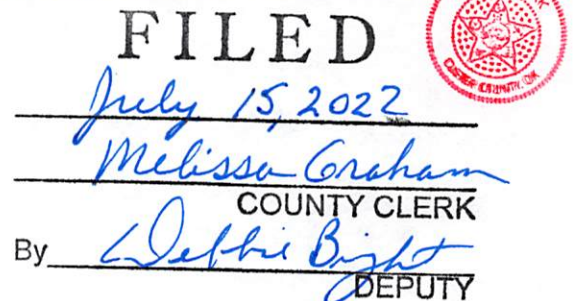 FILED
July 15, 2022
Melissa Graham
COUNTY CLERK
By Debbie Bright
DEPUTY
CUSTER COUNTY, OK